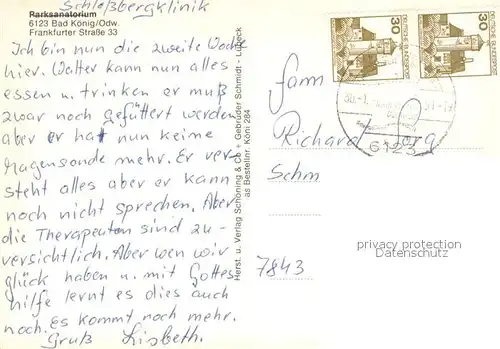 Schloßbergklinik
Parksanatorium
6123 Bad König/Odw.
Frankfurter Straße 33
Ich bin nun die zweite Woche
hier. Walter kann nun alles
essen u. trinken er muß
zwar noch gefüttert werden
aber er hat nun keine
Magensonde mehr. Er ver-
steht alles aber er kann
noch nicht sprechen. Aber
die Therapeuten sind zu-
versichtlich. Aber wen wir
glück haben u. mit Gottes
hilfe lernt es dies auch
noch. Es kommt noch mehr.
Gruß Lisbeth.
Herst. u. Verlag Schöning & Co + Gebrüder Schmidt - Lübeck
as Bestellnr. Köni 284
30
30
6123
Fam
Richard
Schm
7843
privacy protection
Datenschutz